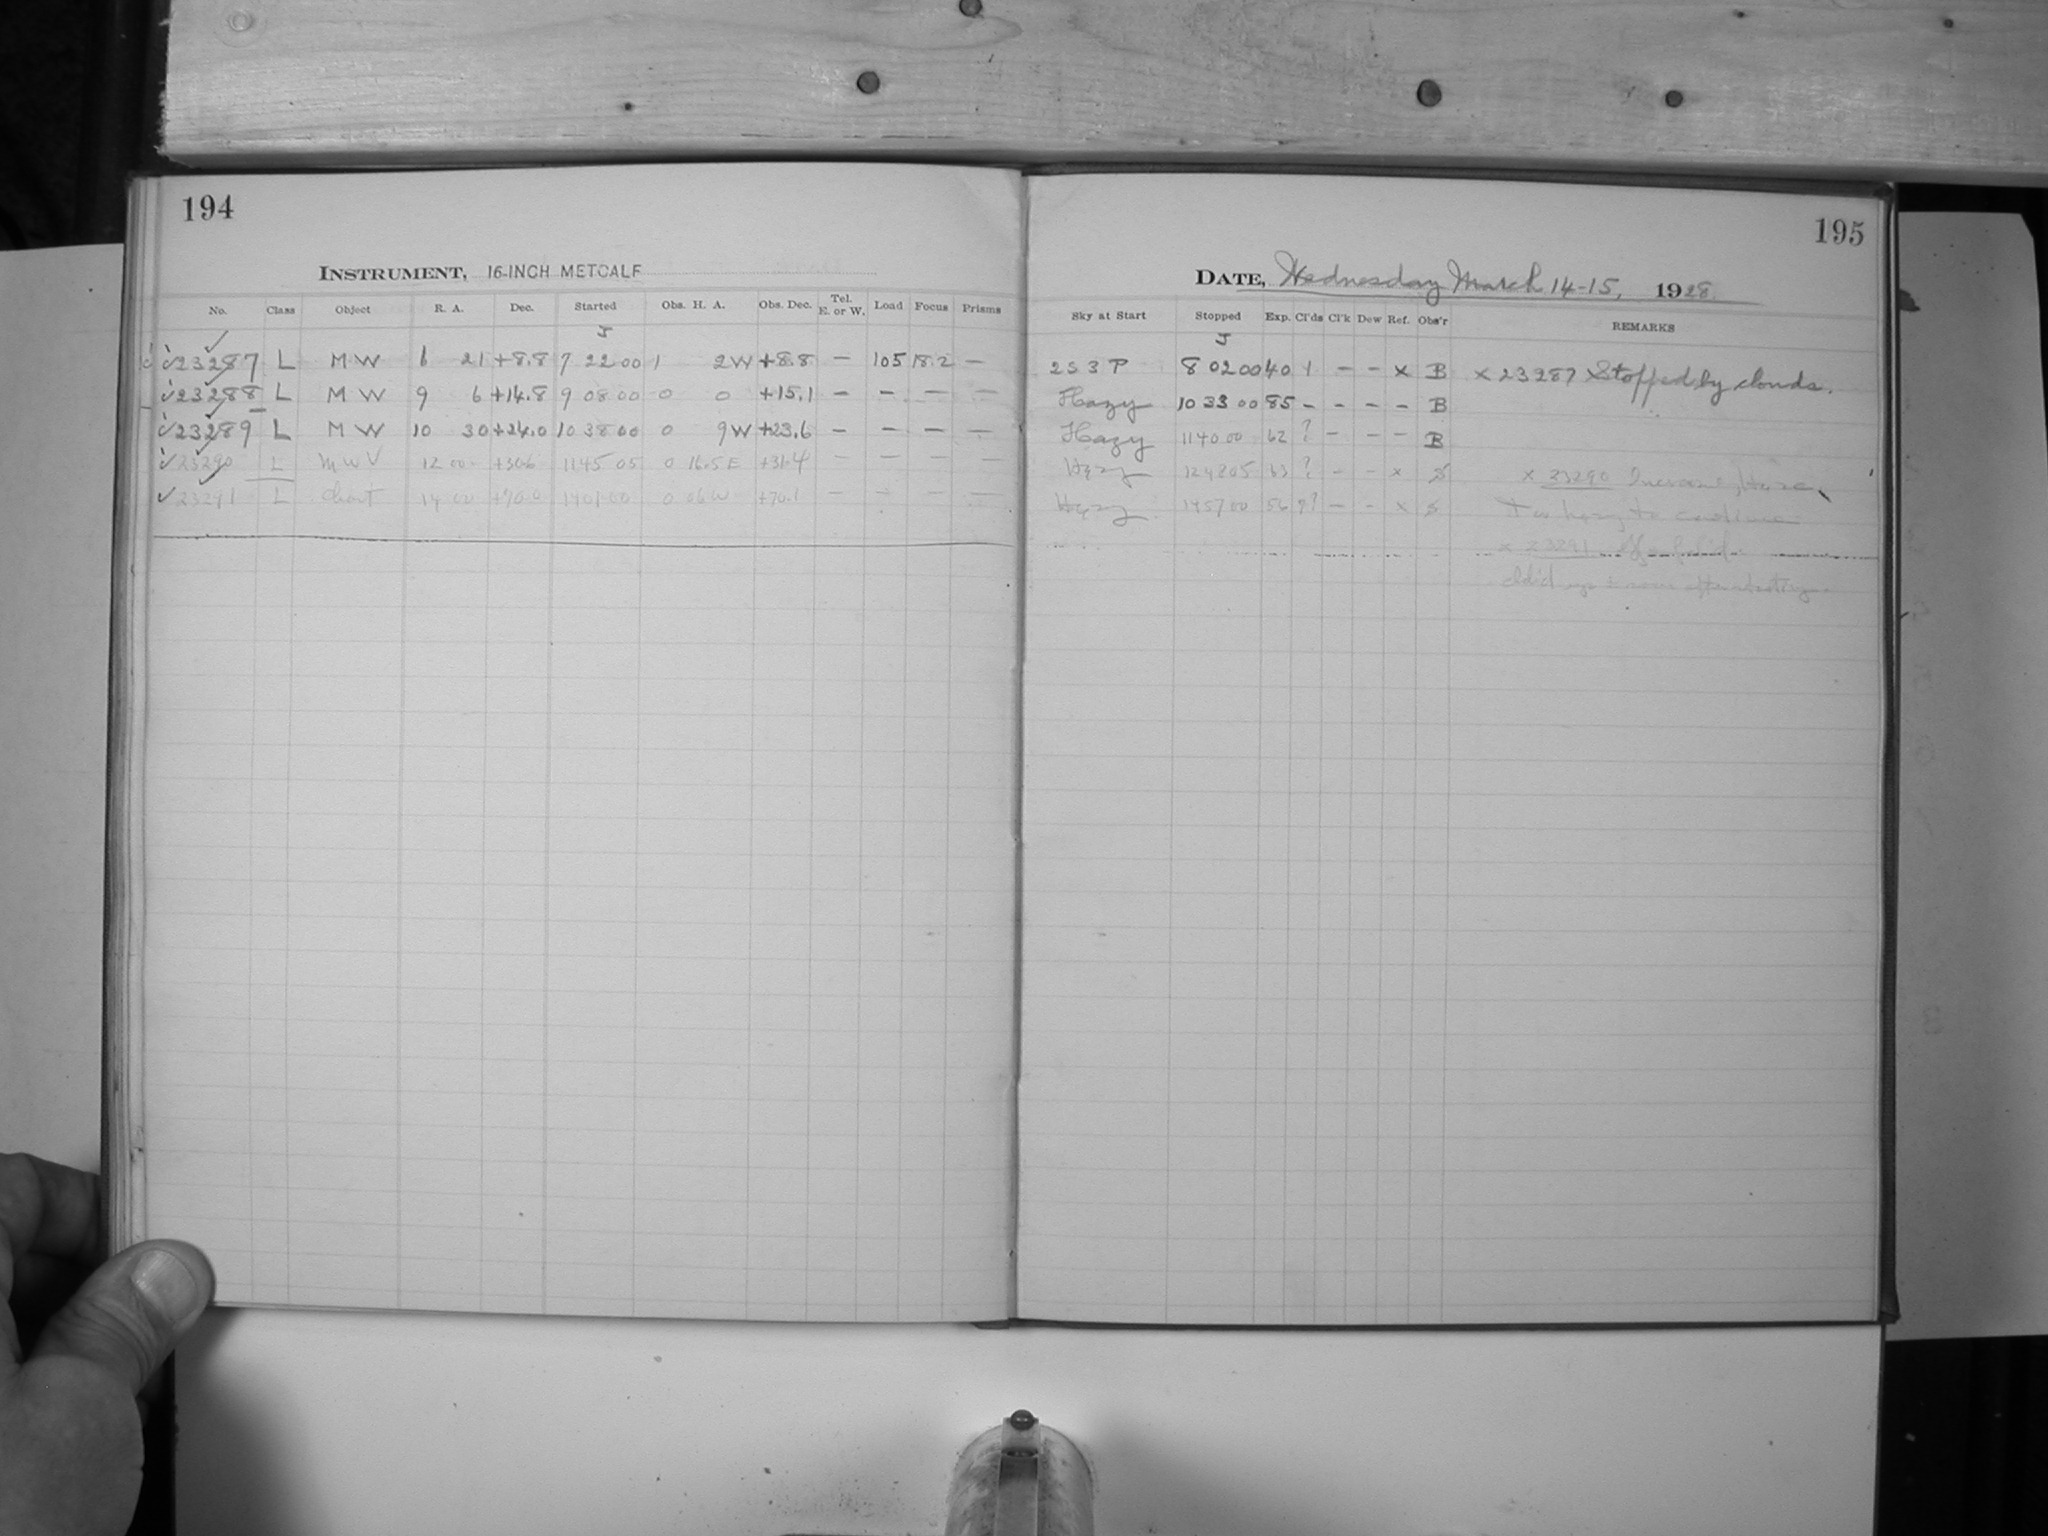 194
INSTRUMENT, 16-INCH METCALF
No. Class Object R. A. Dec. Started Obs. H. A. Obs. Dec. Tel. E. or W. Load Focus Prisms
J
23287 L M W 6 21 +8.8 7 22 00 1 2W +8.8 — 105 18.2 —
23288 L M W 9 6 +14.8 9 08 00 0 0 +15.1 — — — —
23289 L M W 10 30 +24.0 10 38 00 0 9W +23.6 — — — —
23290 L M W V 12 00 +30.6 11 45 05 0 16.5 E +31.4 — — — —
23291 L Chart 14 00 14 01 00 0 06 W +70.1 — — — —
195
DATE, Wednesday March 14-15, 1928
Sky at Start Stopped Exp. Cl'ds Cl'k Dew Ref. Obs'r REMARKS
J
2 S 3 P 8 02 00 40 1 — — x B x 23287 Stopped by clouds.
Hazy 10 33 00 85 — — — — B
Hazy 11 40 00 62 ? — — — B
Hazy 12 48 05 63 ? — — x S x 23290 Increasing Haze,
Hazy 14 57 00 56 9? — — x S Too hazy to continue
x 23291